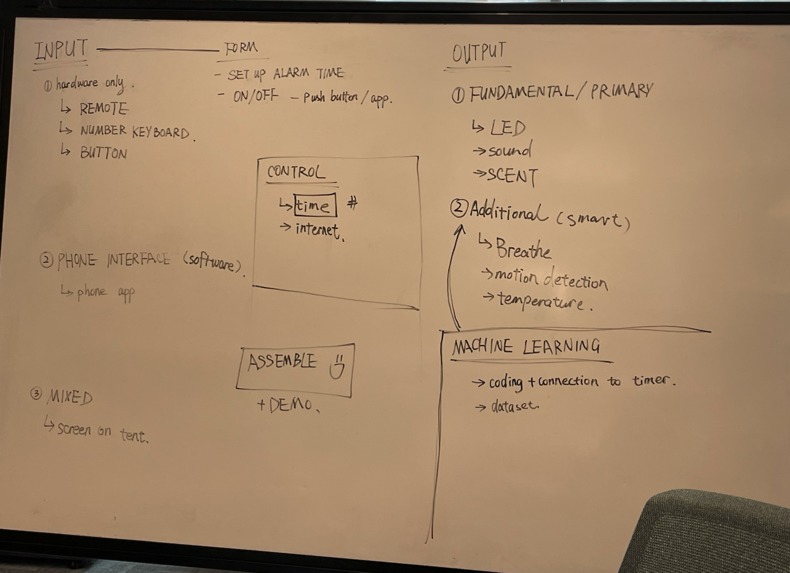 INPUT
① hardware only.
↳ REMOTE
↳ NUMBER KEYBOARD.
↳ BUTTON
② PHONE INTERFACE (software).
↳ phone app
③ MIXED
↳ screen on tent.
FORM
- SET UP ALARM TIME
- ON/OFF - Push button / app.
CONTROL
↳ time #
→ internet.
ASSEMBLE
+ DEMO.
OUTPUT
① FUNDAMENTAL / PRIMARY
↳ LED
→ sound
→ SCENT
② Additional (smart)
↳ Breathe
→ motion detection
→ temperature.
MACHINE LEARNING
→ coding + connection to timer.
→ dataset.